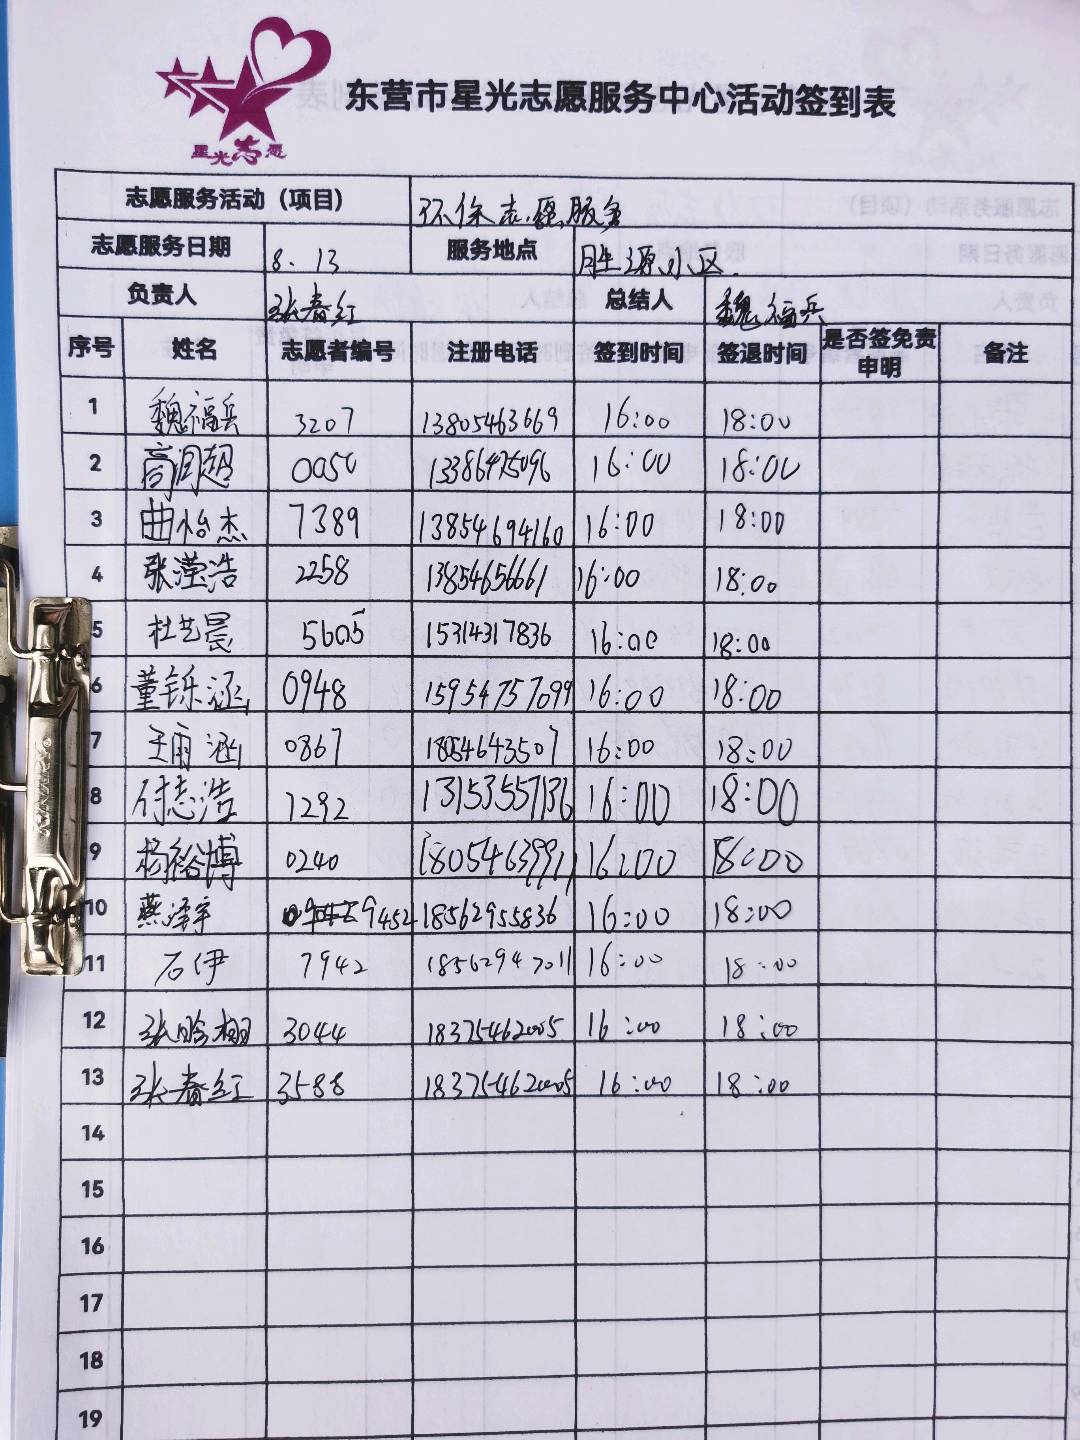 星光志愿
东营市星光志愿服务中心活动签到表
志愿服务活动（项目） 环保志愿服务
志愿服务日期 8.13 服务地点 胜源小区
负责人 张春红 总结人 魏福兵
序号 姓名 志愿者编号 注册电话 签到时间 签退时间 是否签免责申明 备注
1 魏福兵 3207 13805463669 16:00 18:00
2 高润超 0050 13386475096 16:00 18:00
3 曲怡杰 7389 13854694160 16:00 18:00
4 张滢浩 2258 13854656661 16:00 18:00
5 杜艺晨 5605 15314317836 16:00 18:00
6 董铄涵 0948 15954757099 16:00 18:00
7 王雨涵 0867 18054643507 16:00 18:00
8 付志浩 7292 13153557136 16:00 18:00
9 杨裕博 0240 18054639911 16:00 18:00
10 燕泽宇 9452 18562955836 16:00 18:00
11 石伊 7942 18562947011 16:00 18:00
12 张晗栩 3044 18375462005 16:00 18:00
13 张春红 3588 18375462005 16:00 18:00
14
15
16
17
18
19